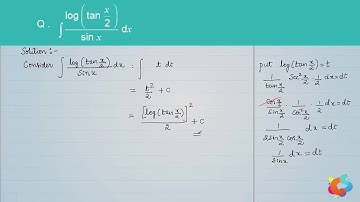 Q . ∫ log(tan x/2) / sin x dx
Solution :-
Consider ∫ log(tan x/2) / sinx dx = ∫ t dt
= t²/2 + c
= [log(tan x/2)]² / 2 + c
put log(tan x/2) = t
1/(tan x/2) · sec² x/2 · 1/2 dx = dt
(cos x/2)/(sin x/2) · 1/(cos² x/2) · 1/2 dx = dt
1/(2 sin x/2 cos x/2) dx = dt
1/sinx dx = dt